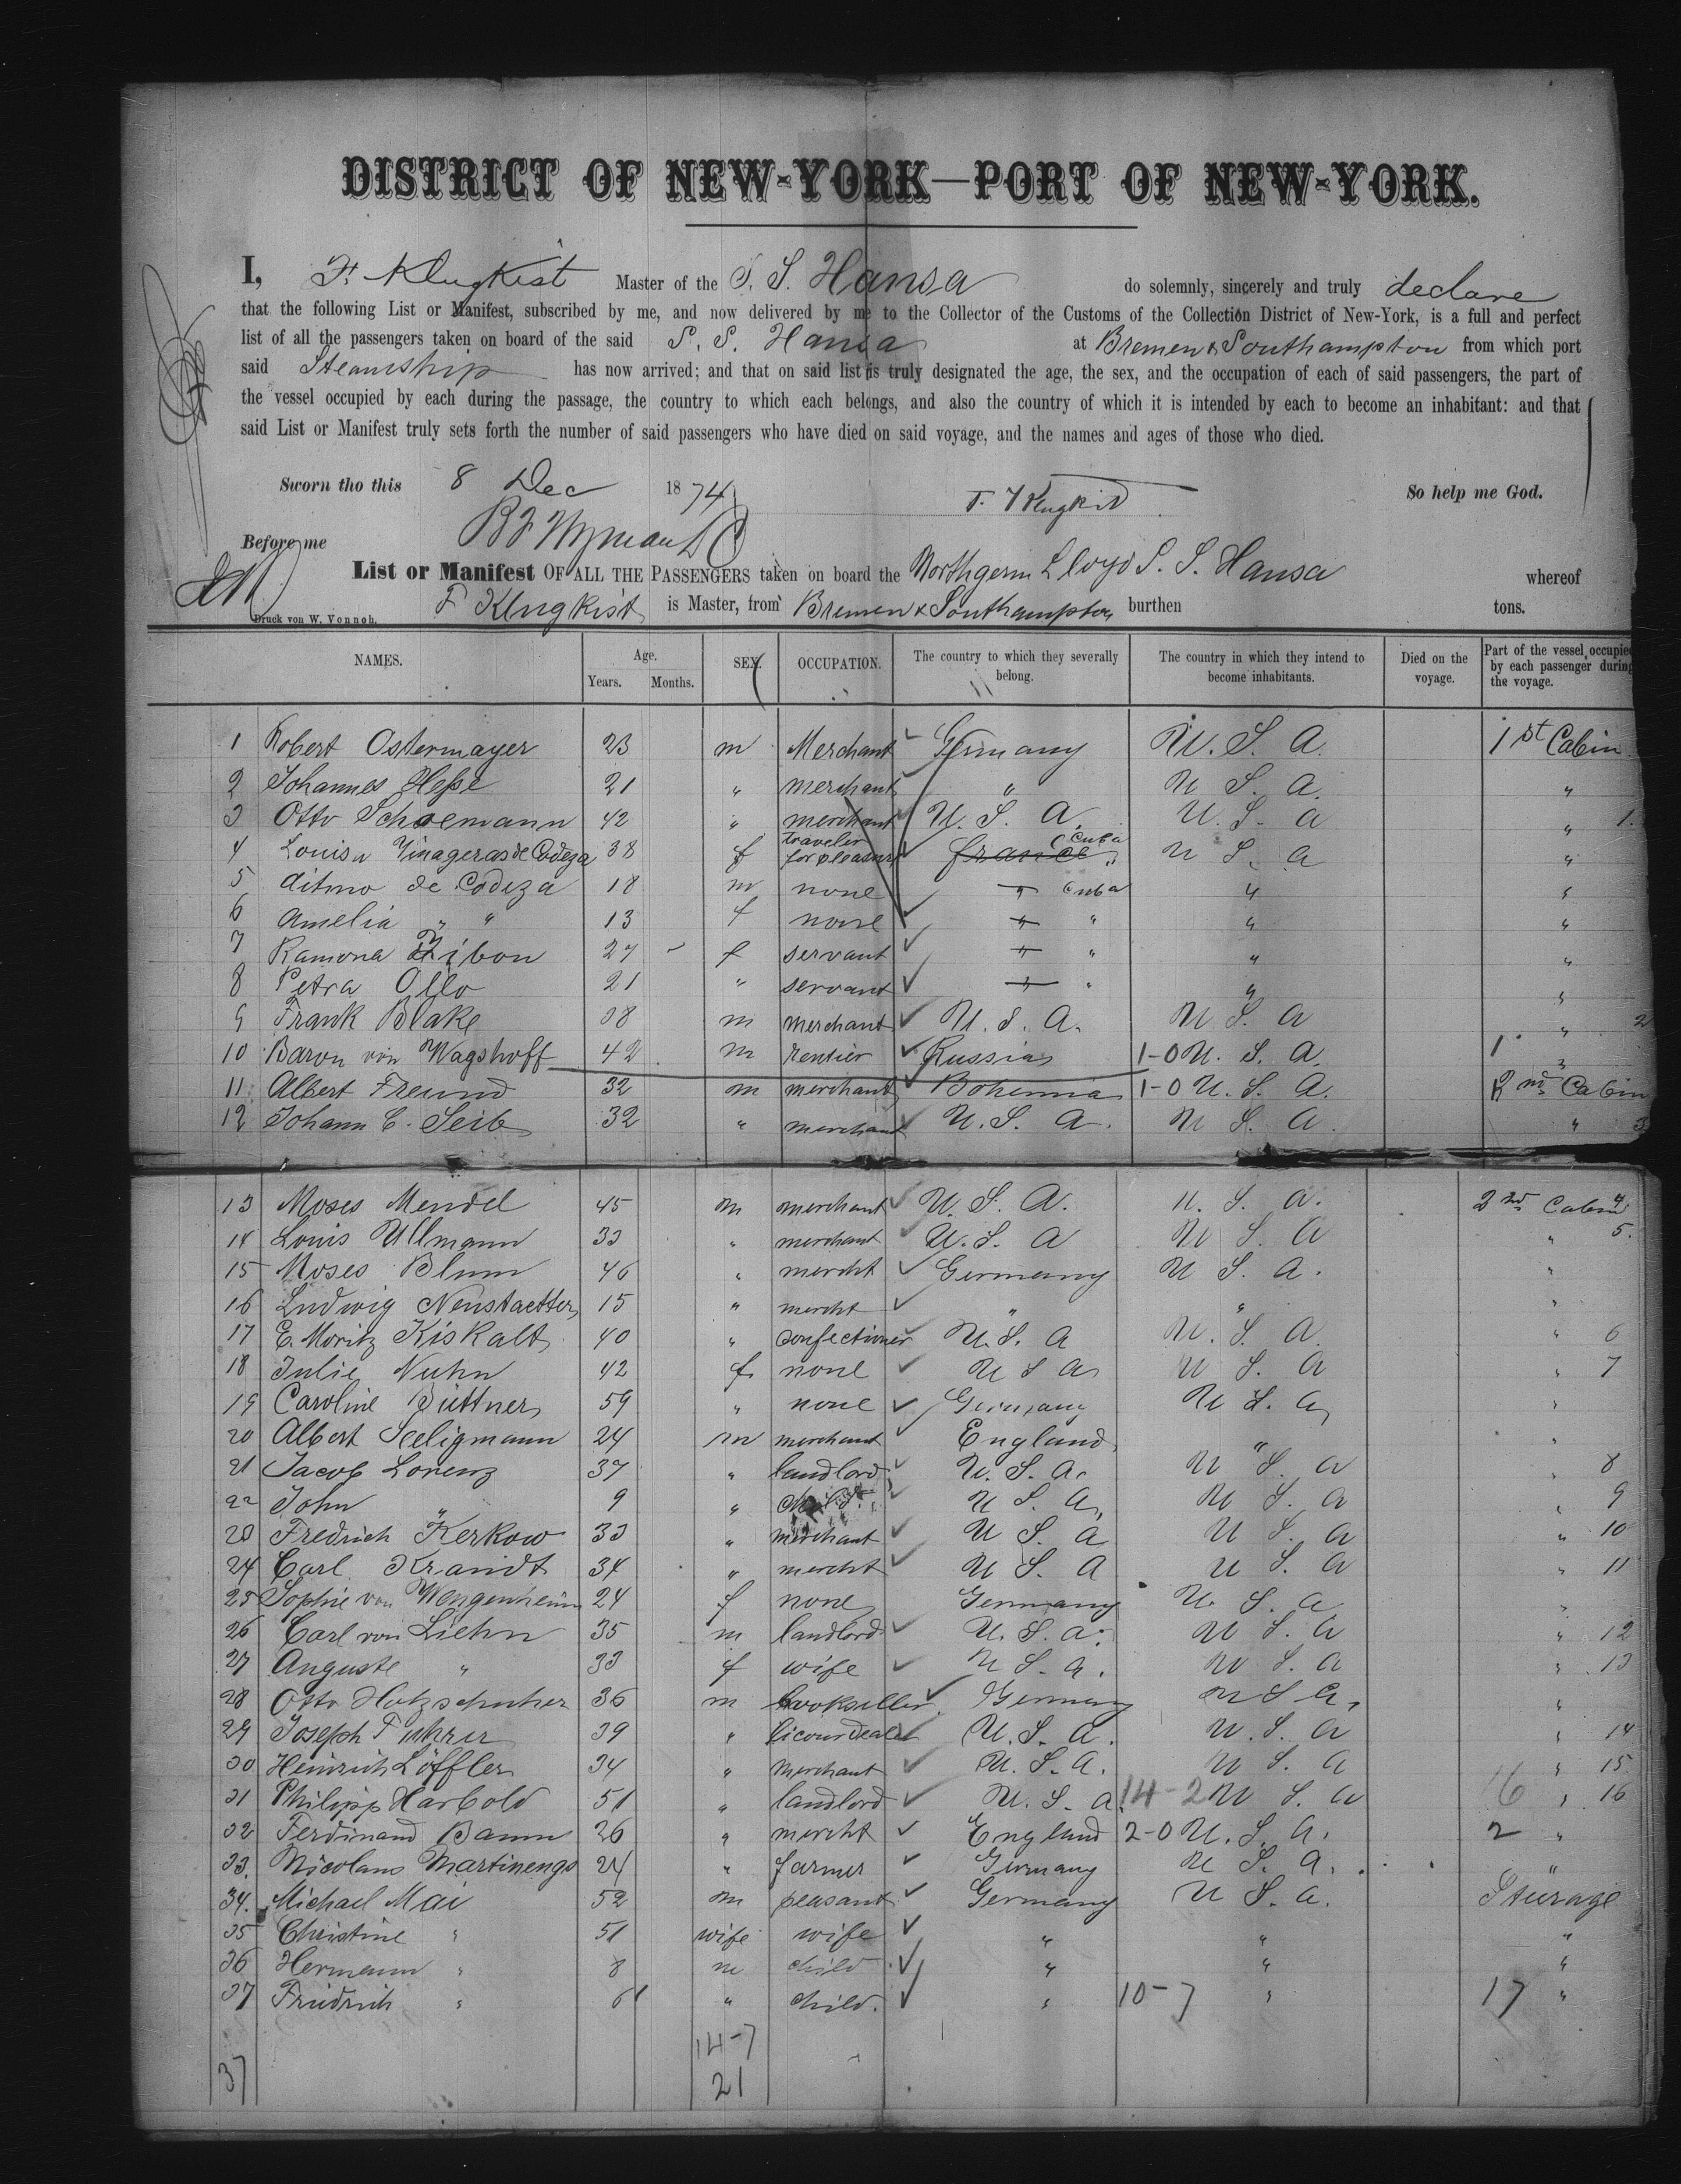 DISTRICT OF NEW-YORK—PORT OF NEW-YORK.
I, F. Klugkist Master of the S. S. Hansa do solemnly, sincerely and truly declare
that the following List or Manifest, subscribed by me, and now delivered by me to the Collector of the Customs of the Collection District of New-York, is a full and perfect
list of all the passengers taken on board of the said S. S. Hansa at Bremen & Southampton from which port
said Steamship has now arrived; and that on said list is truly designated the age, the sex, and the occupation of each of said passengers, the part of
the vessel occupied by each during the passage, the country to which each belongs, and also the country of which it is intended by each to become an inhabitant: and that
said List or Manifest truly sets forth the number of said passengers who have died on said voyage, and the names and ages of those who died.
Sworn tho this 8 Dec 1874 F. Klugkist So help me God.
Before me
List or Manifest OF ALL THE PASSENGERS taken on board the Northgerm Lloyd S. S. Hansa whereof
F Klugkist is Master, from Bremen & Southampton burthen tons.
Druck von W. Vonnoh.
NAMES. Age. Years. Months. SEX. OCCUPATION. The country to which they severally belong. The country in which they intend to become inhabitants. Died on the voyage. Part of the vessel occupied by each passenger during the voyage.
1 Robert Ostermayer 23 m Merchant Germany U. S. A. 1st Cabin
2 Johannes Hesse 21 " merchant " U S. A. "
3 Otto Schoemann 42 " merchant U. S. A. U. S. A " 1.
4 Louisa Vinageras de Codeza 38 f traveler for pleasure france Cuba U S. A "
5 Aitmo de Codeza 18 m none " Cuba " "
6 Amelia " " 13 f none " " " "
7 Ramona Zibon 27 f servant " " " "
8 Petra Ollo 21 " servant " " " "
9 Frank Blake 38 m merchant U. S. A. U S. A " 2
10 Baron von Wagshoff 42 m rentier Russia 1-0 U. S. A. 1 "
11 Albert Freund 32 m merchant Bohemia 1-0 U. S. A. 2nd Cabin
12 Johann C. Seib 32 " merchant U. S. A. U S. A. " 3
13 Moses Mendel 45 m merchant U. S. A. U. S. A. 2nd Cabin 4
14 Louis Ullmann 33 " merchant U. S. A U S. A " 5.
15 Moses Blum 46 " mercht Germany U S. A. "
16 Ludwig Neustaetter 15 " mercht " " "
17 E. Moritz Kiskalt 40 " confectioner U. S. A U. S. A. " 6
18 Julie Nuhn 42 f none U S A U S. A " 7
19 Caroline Büttner 59 " none Germany U S. A "
20 Albert Seeligmann 24 m merchant England " "
21 Jacob Lorenz 37 " landlord U. S. A. U S. A " 8
22 John " 9 " child. U S. A. U S. A " 9
23 Fredrich Kerkow 33 " merchant U S. A U S. A " 10
24 Carl Krandt 34 " mercht U S. A U S. A " 11
25 Sophie von Wengenheim 24 f none Germany U. S. A "
26 Carl von Liehn 35 m landlord U. S. A. U S. A " 12
27 Auguste " 33 f wife U S. A. U S. A " 13
28 Otto Holzschuher 36 m bookseller Germany U S A. "
29 Joseph Fuhrer 39 " licourdealer U. S. A. U. S. A " 14
30 Heinrich Löffler 34 " merchant U. S. A. U S. A " 15
31 Philipp Harbold 51 " landlord U. S. A. 14-2 U S. A 16 " 16
32 Ferdinand Baum 26 " mercht England 2-0 U. S. A. 2 "
33. Nicolaus Martinengo 24 " farmer Germany U S. A. "
34. Michael Mai 52 m peasant Germany U S. A. Steerage
35 Christine " 51 wife wife " " "
36 Hermann " 8 m child " " "
37 Friedrich " 6 " child. " 10-7 " 17 "
14-7
37 21